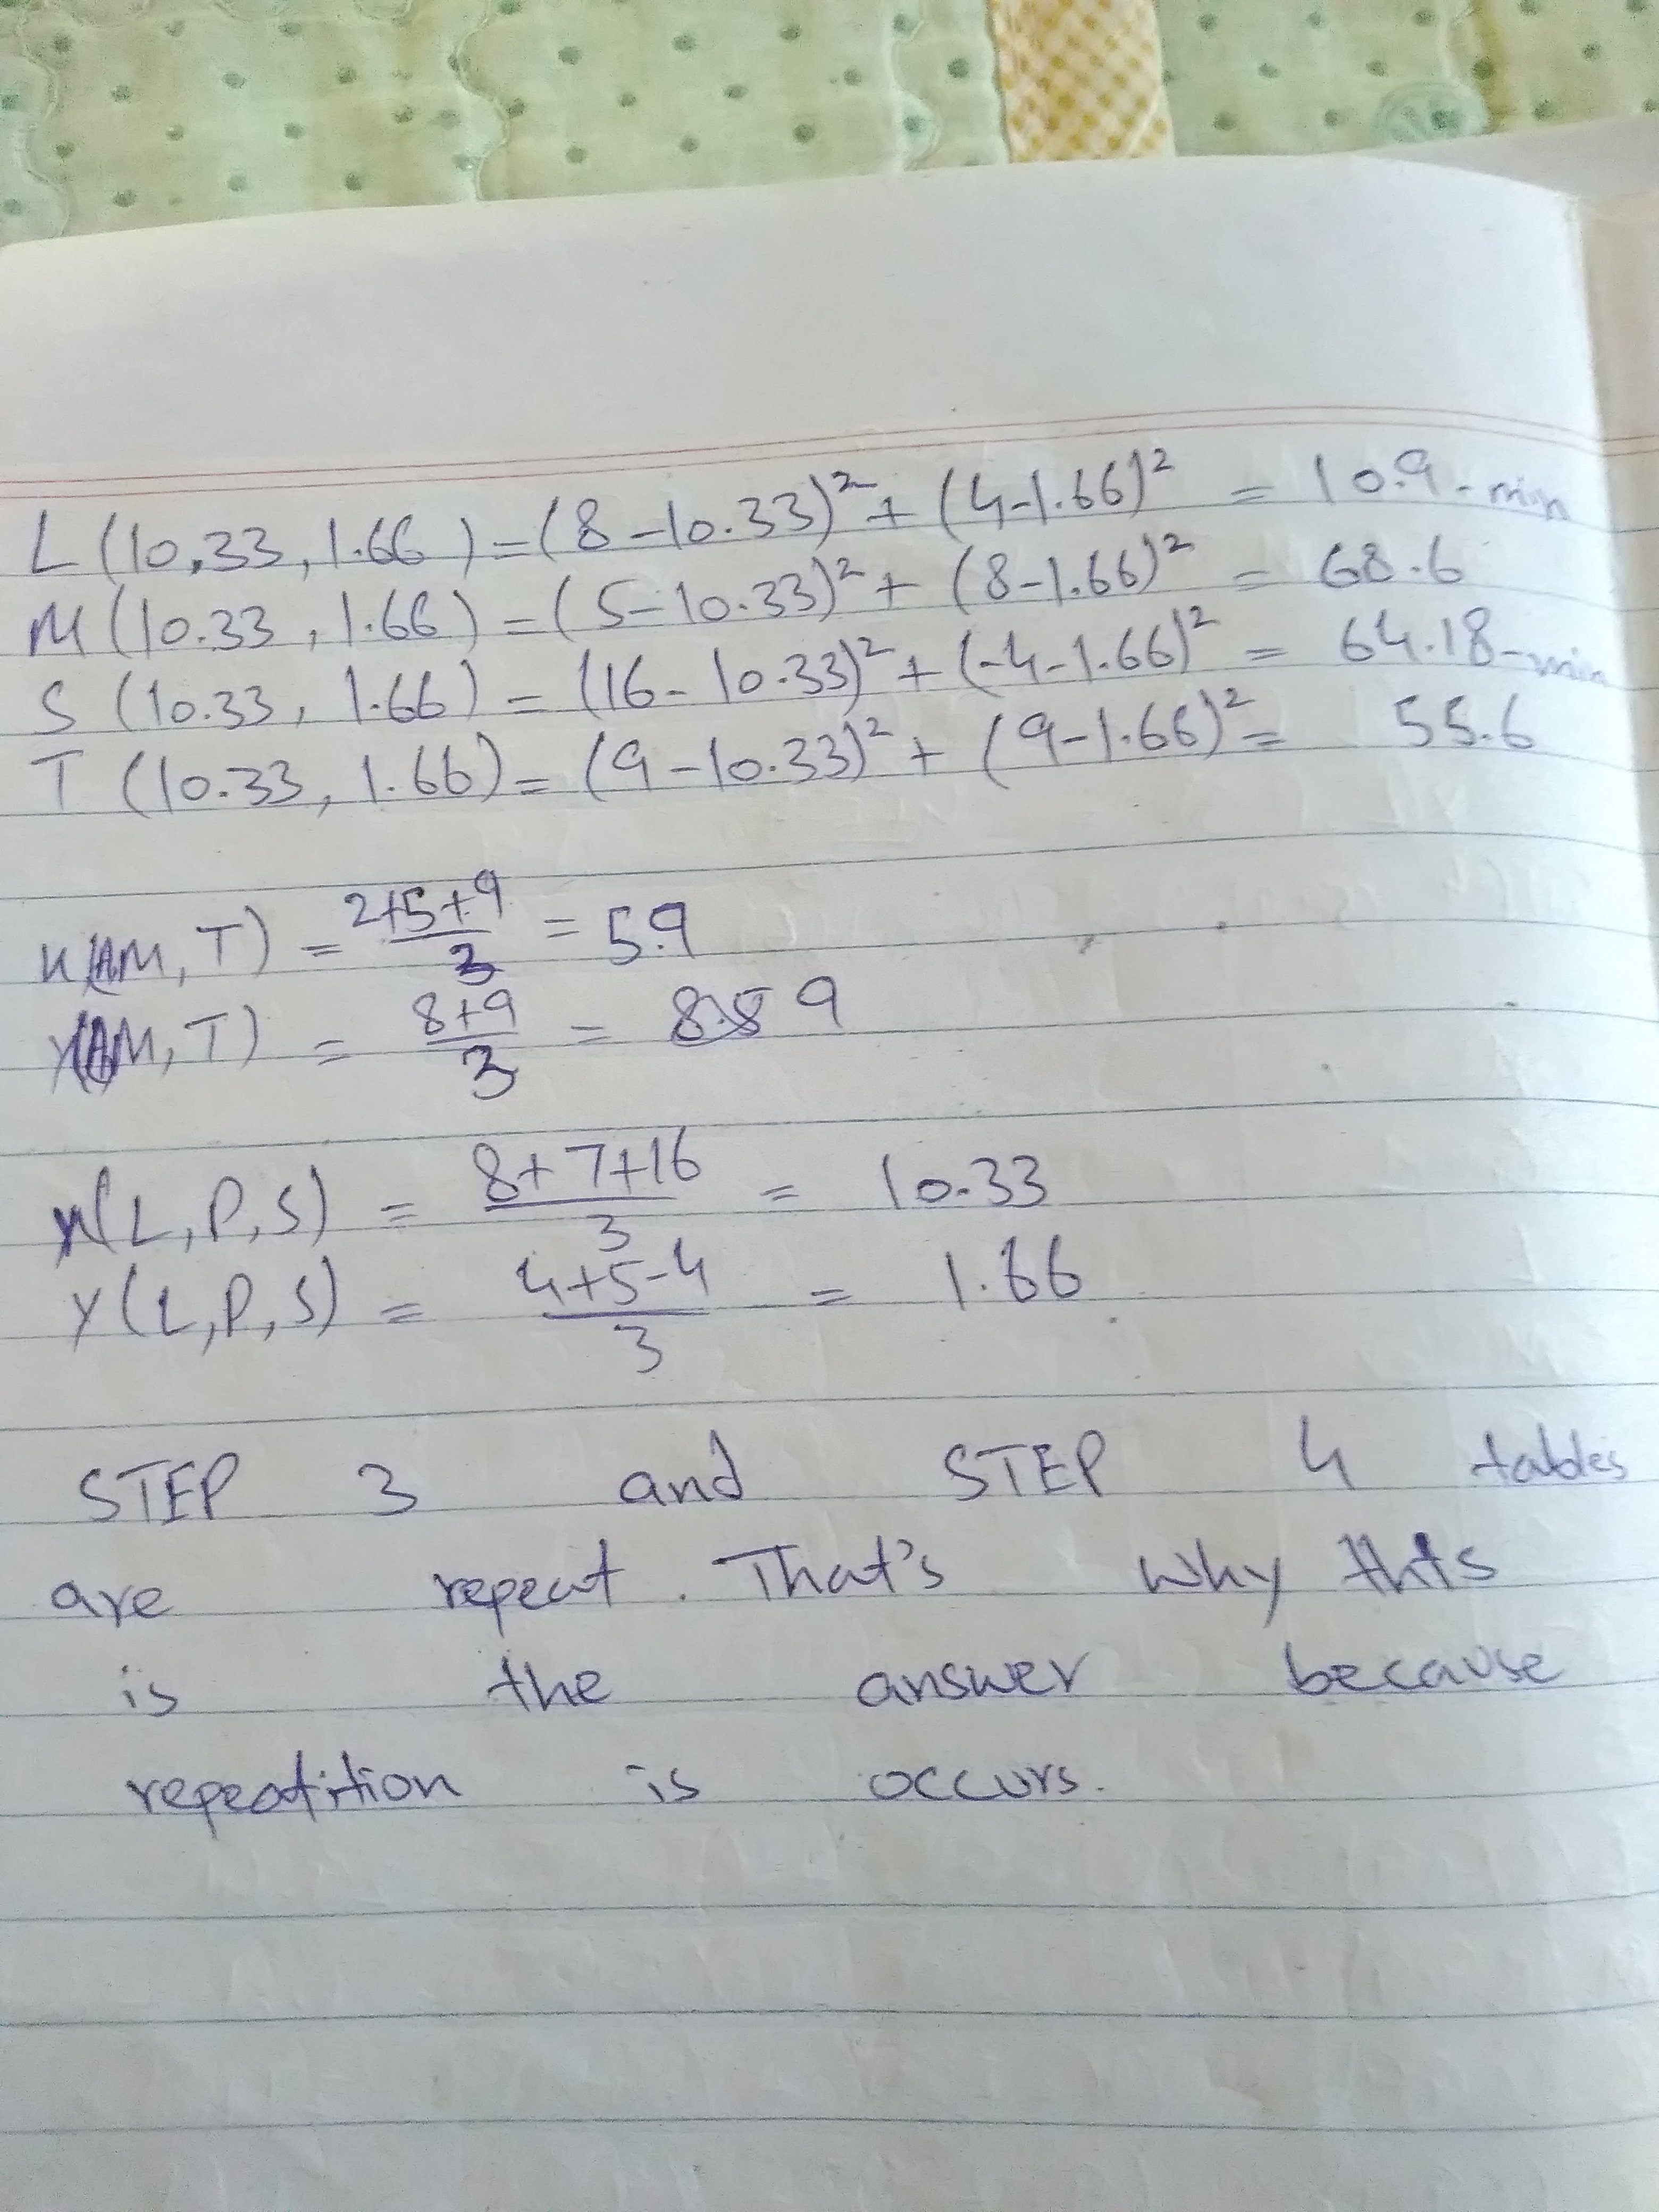 L (10.33, 1.66) = (8-10.33)² + (4-1.66)² = 10.9 - min
M (10.33, 1.66) = (5-10.33)² + (8-1.66)² = 68.6
S (10.33, 1.66) = (16-10.33)² + (-4-1.66)² = 64.18 - min
T (10.33, 1.66) = (9-10.33)² + (9-1.66)² = 55.6
M, T) = 2+5+9/3 = 5.9
M, T) = 8+9/3 = 9
(L, P, S) = 8+7+16/3 = 10.33
Y (L, P, S) = 4+5-4/3 = 1.66
STEP 3 and STEP 4 tables
are repeat. That's why this
is the answer because
repeatition is occurs.